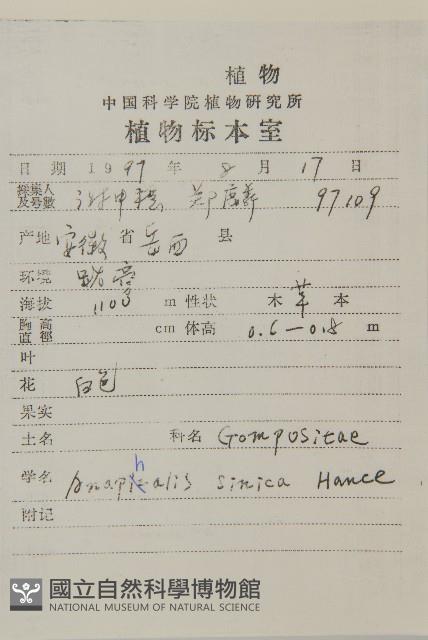 植物
中国科学院植物研究所
植物标本室
日期 1997 年 8 月 17 日
採集人及号數 97109
产地 安徽 省 岳西 县
环境 路旁
海拔 1103 m 性状 木 草 本
胸高直徑 cm 体高 0.6—0.8 m
叶
花 白色
果实
土名 科名 Compositae
学名 Anaphalis sinica Hance
附记
國立自然科學博物館
NATIONAL MUSEUM OF NATURAL SCIENCE